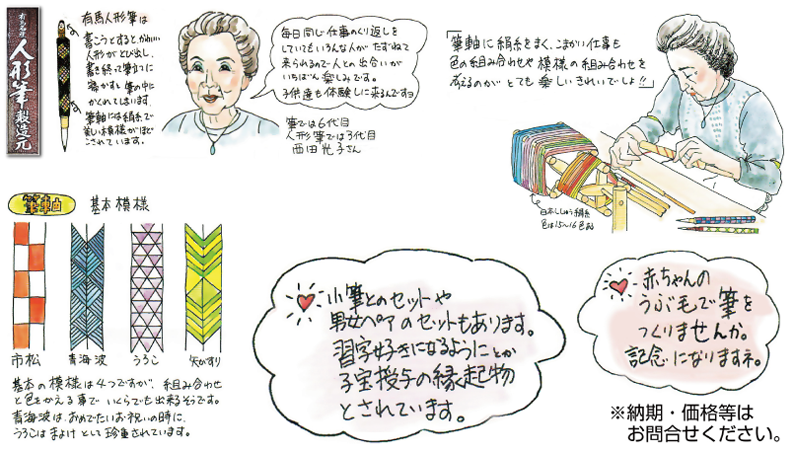 有馬名産
人形筆
製造元
有馬人形筆は
書こうとすると、かわいい
人形がとび出し、
書き終って筆立てに
寝かすと筆の中に
かくれてしまいます。
筆軸には絹糸で
美しい模様がほど
こされています。
毎日同じ仕事のくり返しを
していてもいろんな人が たずねて
来られるので人との出合いが
いちばん楽しみです。
子供達も体験しに来るんですョ
筆では6代目
人形筆では3代目
西田光子さん
「筆軸に絹糸をまく、こまかい仕事も
色の組み合わせや模様の組み合わせを
考えるのが とても楽しいきれいでしょ!!」
日本ししゅう絹糸
色は15〜16色ある
筆軸 基本模様
市松
青海波
うろこ
矢がすり
基本の模様は4つですが、組み合わせ
と色をかえる事で いくらでも出来るそうです。
青海波は、おめでたいお祝いの時に、
うろこは まよけ として珍重されています。
小筆とのセットや
男女ペアのセットもあります。
習字好きになるようにとか
子宝授与の縁起物
とされています。
赤ちゃんの
うぶ毛で筆を
つくりませんか。
記念になりますネ。
※納期・価格等は
お問合せください。